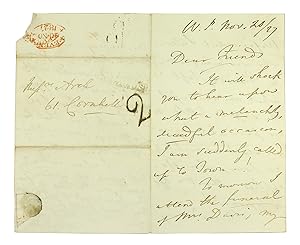 Messrs Arch
61 Cornhill
2
W. P. Nov. 20/27
Dear Friends
It will shock
you to hear upon
what a melancholy,
dreadful occasion,
I am suddenly called
up to Town...!
To morrow I
attend the funeral
of Mrs Davis, my